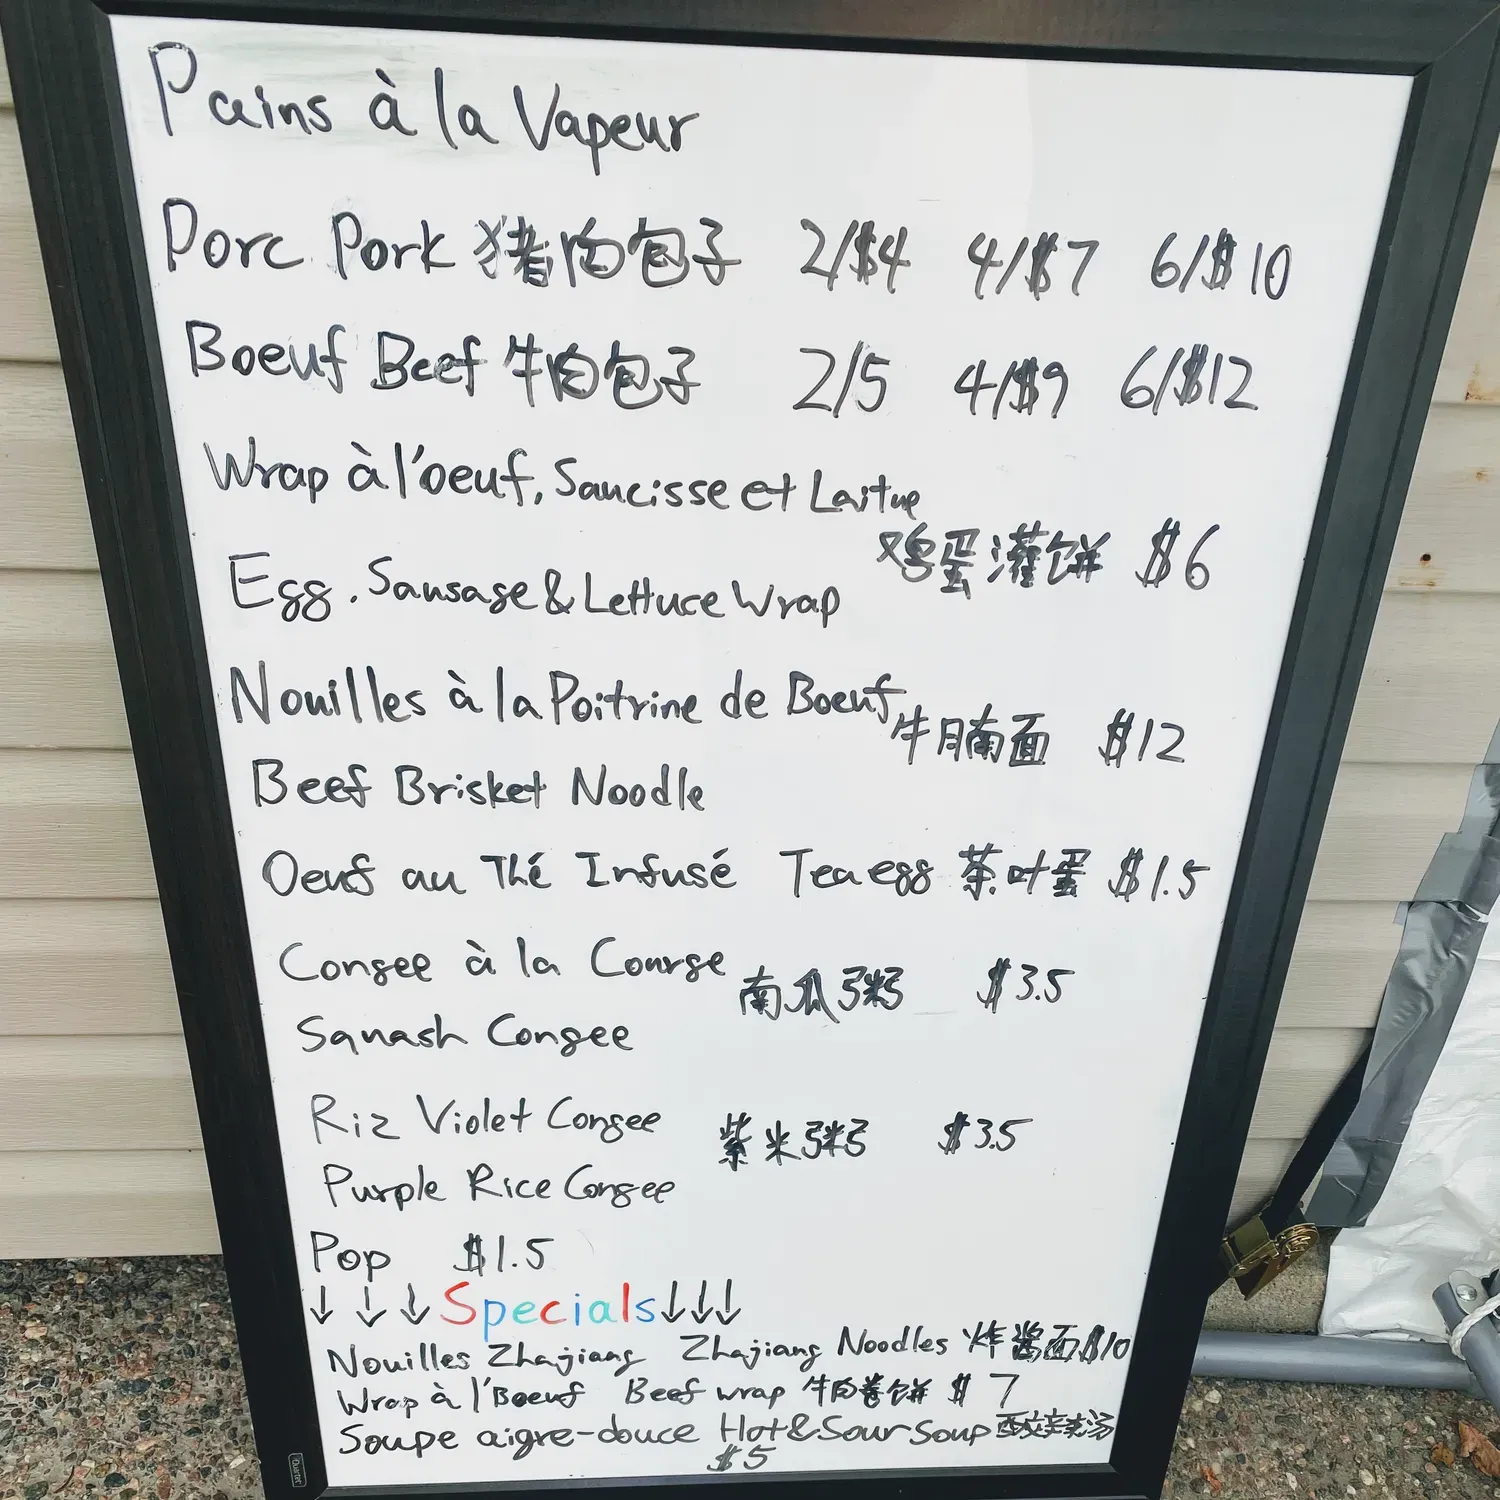 Pains à la Vapeur
Porc Pork 猪肉包子 2/$4 4/$7 6/$10
Boeuf Beef 牛肉包子 2/5 4/$9 6/$12
Wrap à l'oeuf, Saucisse et Laitue
鸡蛋灌饼 $6
Egg, Sausage & Lettuce Wrap
Nouilles à la Poitrine de Boeuf
牛腩面 $12
Beef Brisket Noodle
Oeuf au Thé Infusé Tea egg 茶叶蛋 $1.5
Congee à la Courge
南瓜粥 $3.5
Squash Congee
Riz Violet Congee
紫米粥 $3.5
Purple Rice Congee
Pop $1.5
↓ ↓ ↓ Specials ↓↓↓
Nouilles Zhajiang Zhajiang Noodles 炸酱面 $10
Wrap à l'Boeuf Beef wrap 牛肉卷饼 $7
Soupe aigre-douce Hot & Sour Soup 酸辣汤
$5
Quartet